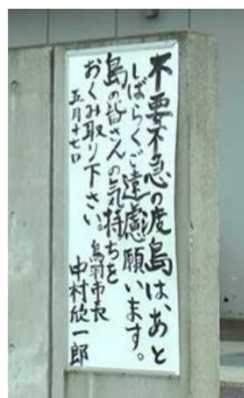 不要不急の渡島は、あと
しばらくご遠慮願います。
島の皆さんの気持ちを
おくみ取り下さい。鳥羽市長
中村欣一郎
五月十七日